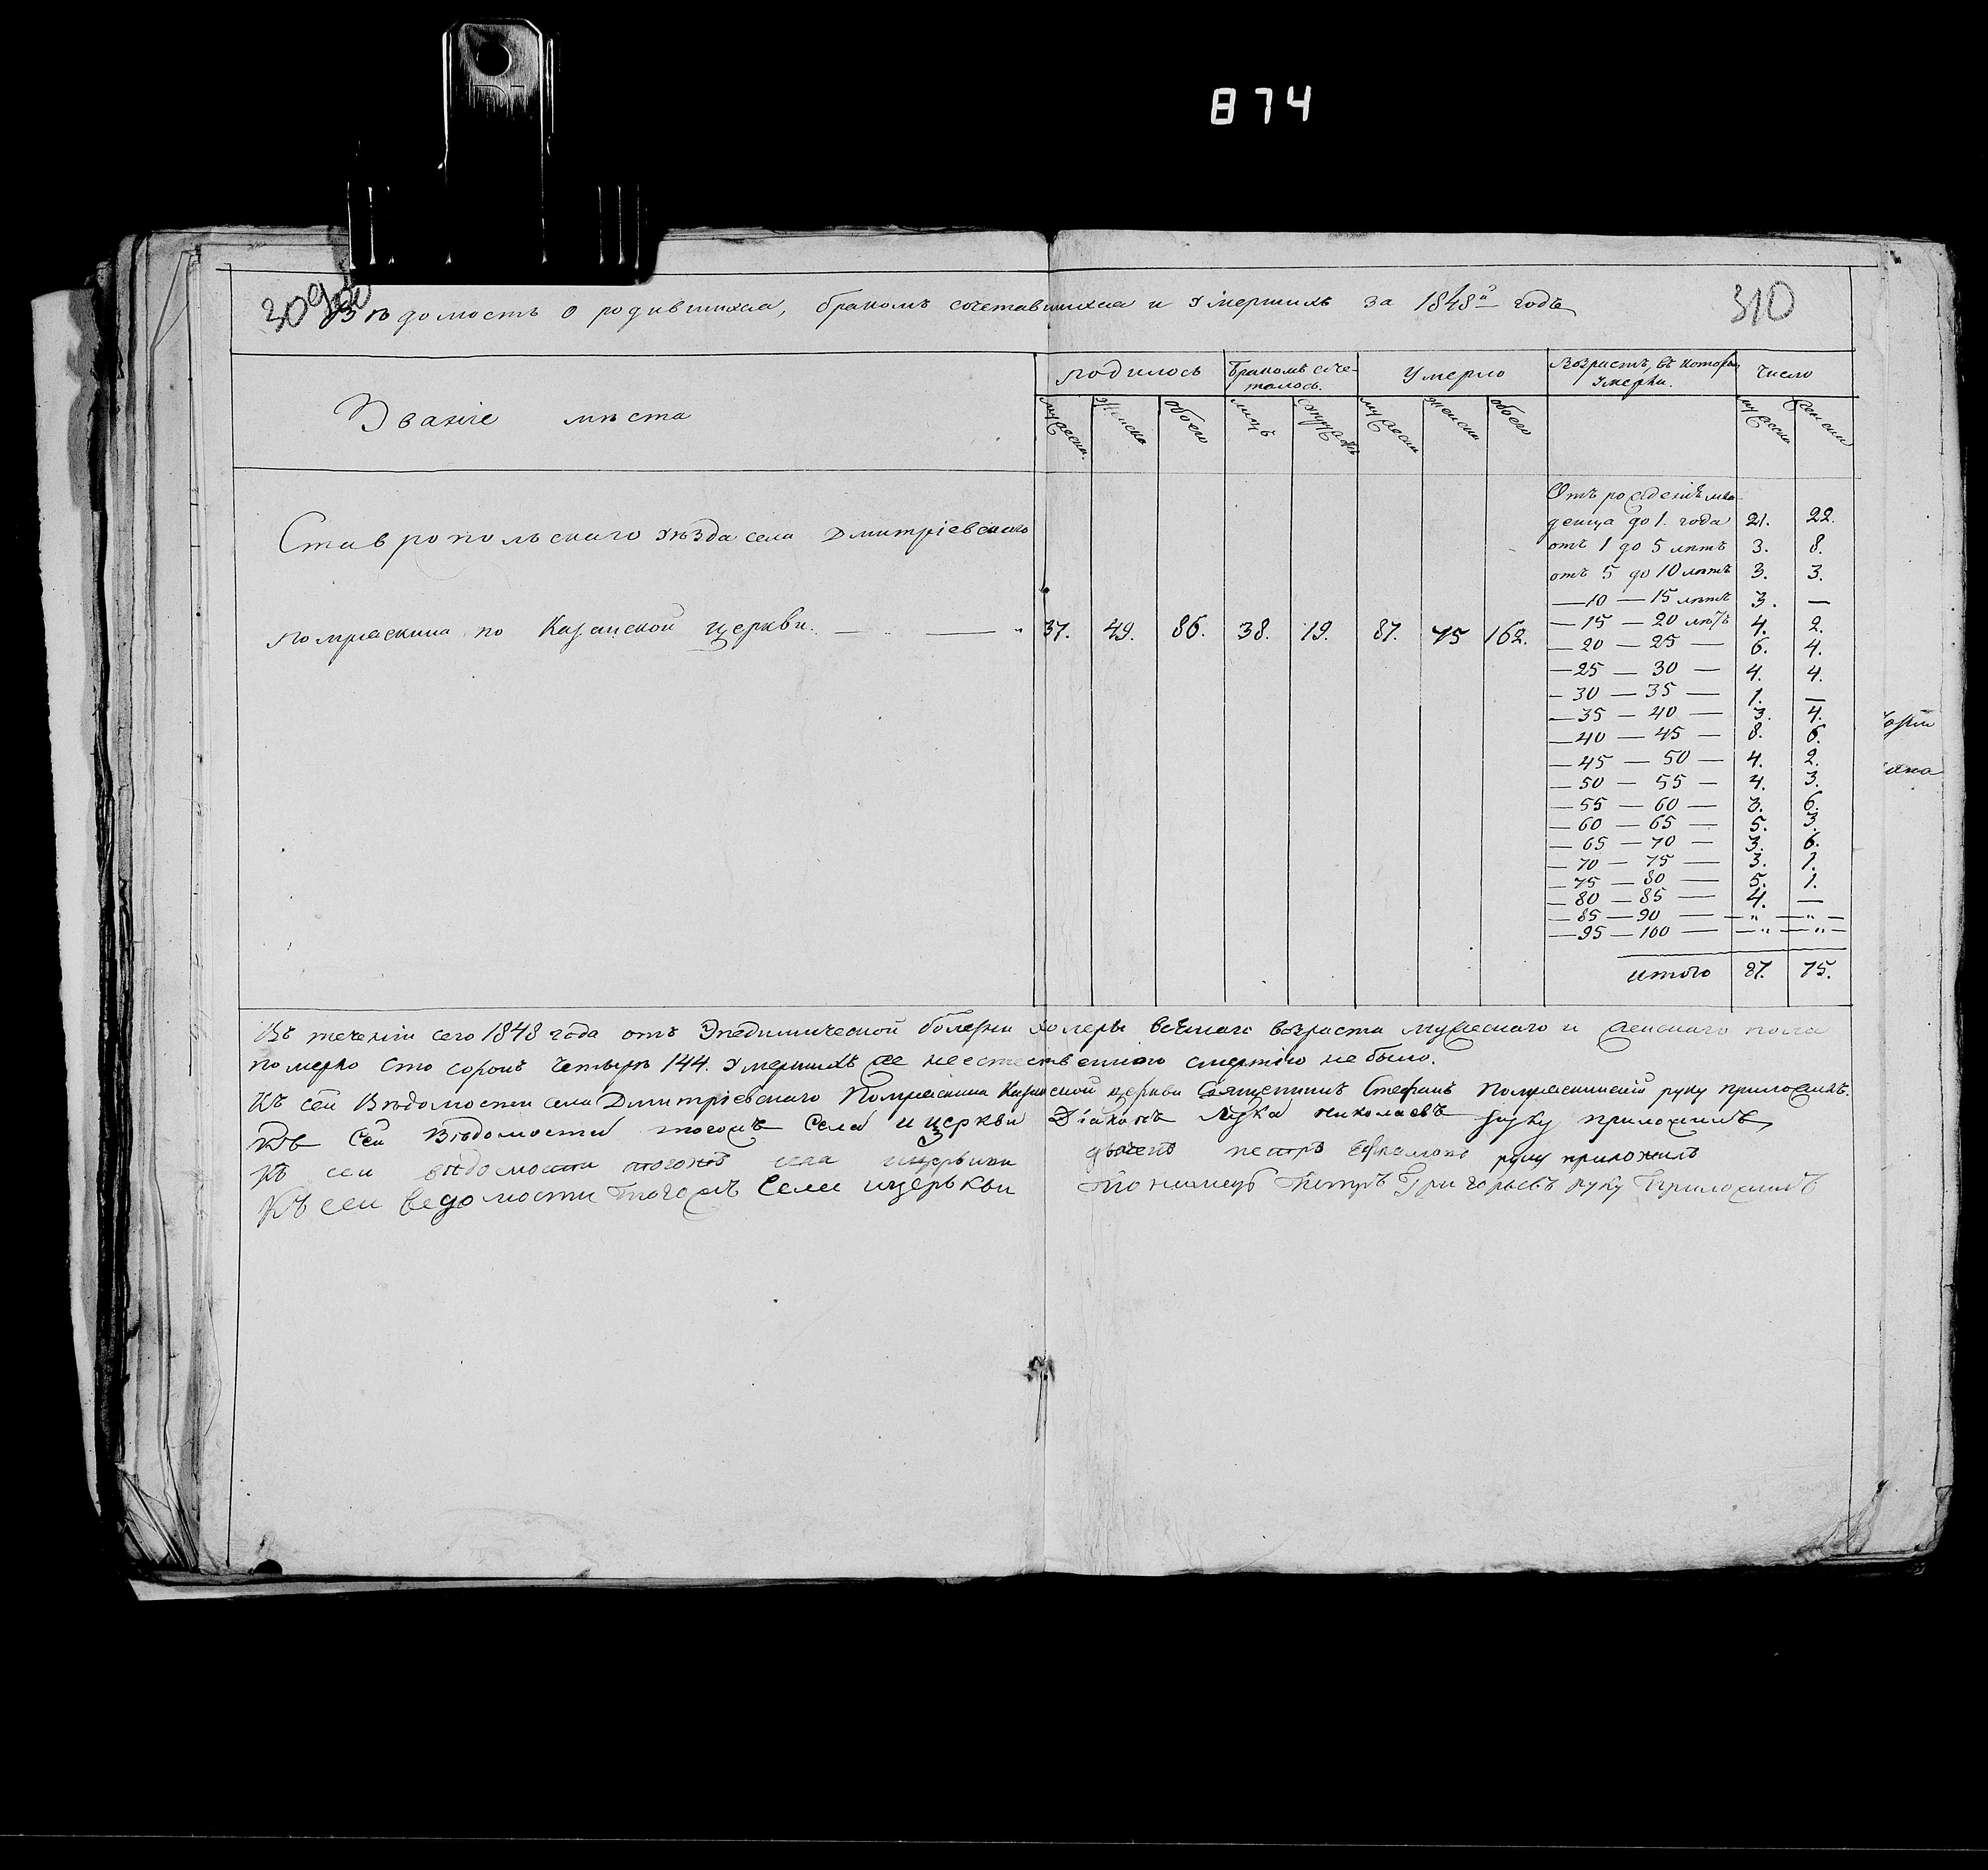 874
309об
310
Вѣдомость о родившихся, бракомъ сочетавшихся и умершихъ за 1848й годъ
Званіе мѣста
Родилось
Бракомъ соче-
талось.
Умерло
Возрастъ, въ которы
умерли.
Число
мужеска.
женска
обоего
лицъ
мужеска
женска
обоего
мужеска
женска
Ставропольскаго уѣзда села Дмитріевскаго
Помряскина по Казанской церкви. 37. 49. 86. 38. 19. 87. 75 162.
Отъ рожденія мла-
денца до 1. года 21. 22.
отъ 1 до 5 лѣтъ 3. 8.
отъ 5 до 10 лѣтъ 3. 3.
— 10 — 15 лѣтъ 3. —
— 15 — 20 лѣтъ 4. 2.
— 20 — 25 — 6. 4.
— 25 — 30 — 4. 4.
— 30 — 35 — 1. —
— 35 — 40 — 3. 4.
— 40 — 45 — 8. 6.
— 45 — 50 — 4. 2.
— 50 — 55 — 4. 3.
— 55 — 60 — 3. 6.
— 60 — 65 — 5. 3.
— 65 — 70 — 3. 6.
— 70 — 75 — 3. 1.
— 75 — 80 — 5. 1.
— 80 — 85 — 4. —
— 85 — 90 — — " — " —
— 95 — 100 — — " — " —
итого 87. 75.
Въ теченіи сего 1848 года отъ Эпедимической болезни холеры всякаго возраста мужескаго и женскаго пола
померло сто сорокъ четыре 144. Умершихъ же неестественною смертію не было.
Къ сей Вѣдомости села Дмитріевскаго Помряскина Казанской церкви Священникъ Стефанъ Помряскинскій руку приложилъ.
Къ сей Вѣдомости тогожъ села и церкви Діаконъ Лука Николаевъ руку приложилъ
Къ сей вѣдомости тогожъ села ицеръкви дьячекъ петръ руку приложилъ
Къ сеи ведомости тогожъ села ицеръкви пономарь Петръ Григорьевъ руку Приложилъ